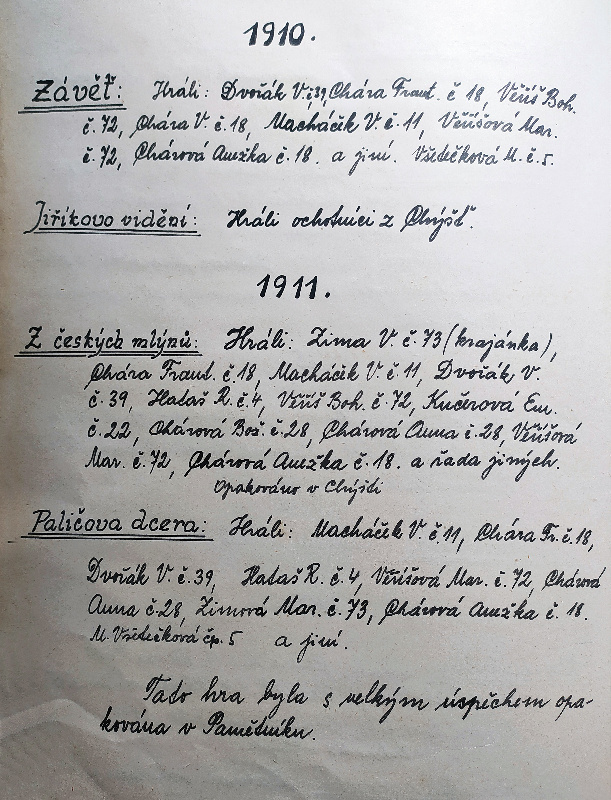 1910.
Závěť: Hráli: Dvořák V. č.39, Chára Frant. č 18, Věříš Boh.
č. 72, Chára V. č. 18, Macháček V. č 11, Věříšová Mar.
č. 72, Chárová Anežka č. 18. a jiní. Všetečková M. č 5.
Jiříkovo vidění: Hráli ochotníci z Chýšť.
1911.
Z českých mlýnů: Hráli: Zima V. č. 73 (krajánka),
Chára Frant. č. 18, Macháček V. č. 11, Dvořák V.
č. 39, Hataš R. č. 4, Věříš Boh. č. 72, Kučerová Em.
č. 22, Chárová Bož. č. 28, Chárová Anna č. 28, Věříšová
Mar. č. 72, Chárová Anežka č. 18. a řada jiných.
Opakováno v Chýšti
Paličova dcera: Hráli: Macháček V. č. 11, Chára Fr. č. 18,
Dvořák V. č. 39, Hataš R. č. 4, Věříšová Mar. č. 72, Chárová
Anna č. 28, Zimová Mar. č. 73, Chárová Anežka č. 18.
M. Všetečková čp. 5 a jiní.
Tato hra byla s velkým úspěchem opa-
kována v Pamětníku.